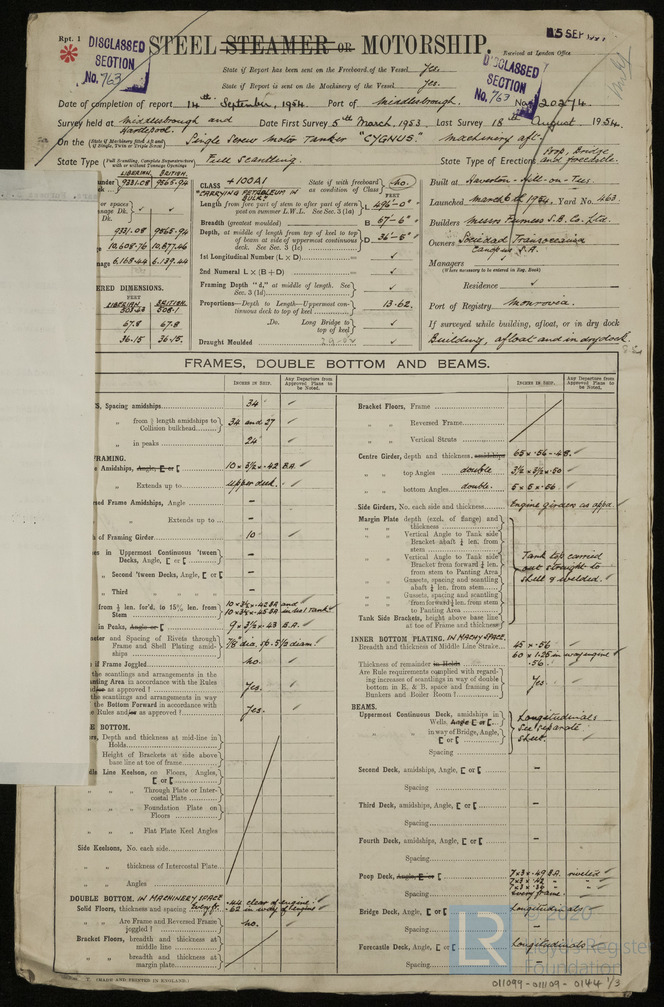 Rpt. 1
DISCLASSED
SECTION
No. 763
STEEL STEAMER OR MOTORSHIP.
15 SEP
Received at London Office
DISCLASSED
SECTION
No. 763
State if Report has been sent on the Freeboard of the Vessel Yes.
State if Report is sent on the Machinery of the Vessel Yes.
Date of completion of report 14th September, 1954. Port of Middlesbrough. No.
Survey held at Middlesbrough and Hartlepool. Date First Survey 5th March, 1953, Last Survey 18th August, 1954.
On the (State if Machinery fitted Aft and if Single, Twin or Triple Screw) Single Screw Motor Tanker "CYGNUS" Machinery aft.
State Type (Full Scantling, Complete Superstructure with or without Tonnage Openings) Full Scantling
State Type of Erections Poop, Bridge, and forecastle.
LIBERIAN. BRITISH.
under 9331.08 9865.94
9331.08 9865.94
10,608.76 10,877.46
6,163.44 6,139.44
ERED DIMENSIONS.
FEET
LIBERIAN BRITISH
508.1
67.8 67.8
36.15 36.15
CLASS +100A1
"CARRYING PETROLEUM IN BULK"
State if with freeboard as condition of Class no.
Length from fore part of stem to after part of stern post on summer L.W.L. See Sec. 3 (1a) L 496'-0"
Breadth (greatest moulded) B 67'-6"
Depth, at middle of length from top of keel to top of beam at side of uppermost continuous deck. See Sec. 3 (1c) D 36'-5"
1st Longitudinal Number (L × D)
2nd Numeral L × (B + D)
Framing Depth "d," at middle of length. See Sec. 3 (1d)
Proportions—Depth to Length—Uppermost continuous deck to top of keel 13.62.
Do. Long Bridge to top of keel
Draught Moulded
Built at Haverton-Hill-on-Tees
Launched March 6th 1954, Yard No. 463.
Builders Messrs Furness S.B. Co. Ltd.
Owners Sociedad Transoceanica Canopus S.A.
Managers
(Where necessary to be entered in Reg. Book)
Residence
Port of Registry Monrovia.
If surveyed while building, afloat, or in dry dock
Building, afloat and in dry dock.
FRAMES, DOUBLE BOTTOM AND BEAMS.
INCHES IN SHIP. Any Departure from Approved Plans to be Noted.
INCHES IN SHIP. Any Departure from Approved Plans to be Noted.
S, Spacing amidships 34
" from ¾ length amidships to Collision bulkhead 34 and 27
" in peaks 24
FRAMING.
Amidships, Angle, E or [ 10 × 3½ × .42 B.A.
" Extends up to upper deck.
sed Frame Amidships, Angle -
" Extends up to -
h of Framing Girder 10
es in Uppermost Continuous 'tween Decks, Angle, [ or [ -
" Second 'tween Decks, Angle, [ or [ -
" Third " " " -
from ¾ len. for'd. to 15% len. from Stem 10 × 3½ × .42 BA and 10 × 3½ × .45 BA in fuel tank
in Peaks, Angle or [ 9 × 3½ × .43 B.A.
eter and Spacing of Rivets through Frame and Shell Plating amidships 7/8" dia. sp. 5/6 diam.
if Frame Joggled no.
the scantlings and arrangements in the nting Area in accordance with the Rules and/or as approved? Yes.
the scantlings and arrangements in way the Bottom Forward in accordance with the Rules and/or as approved? Yes.
E BOTTOM.
rs, Depth and thickness at mid-line in Holds
Height of Brackets at side above base line at toe of frame
dle Line Keelson, on Floors, Angles, [ or [
" " " Through Plate or Intercostal Plate
" " " Foundation Plate on Floors
" " " Flat Plate Keel Angles
Side Keelsons, No. each side
" " thickness of Intercostal Plate
" " Angles
DOUBLE BOTTOM. IN MACHINERY SPACE
Solid Floors, thickness and spacing Every fr. .44 clear of engine. .62 in way of engine
" " Are Frame and Reversed Frame joggled? no.
Bracket Floors, breadth and thickness at middle line
" " breadth and thickness at margin plate
Bracket Floors, Frame
" " Reversed Frame
" " Vertical Struts
Centre Girder, depth and thickness, amidships 65 × .56 - .48
" " top Angles double 3½ × 3½ × .50
" " bottom Angles double. 5 × 5 × .56
Side Girders, No. each side and thickness Engine girders as appd.
Margin Plate depth (excl. of flange) and thickness
" " Vertical Angle to Tank side Bracket abaft ¼ len. from stem
" " Vertical Angle to Tank side Bracket from forward ¼ len. from stem to Panting Area
" " Gussets, spacing and scantling abaft ¼ len. from stem
" " Gussets, spacing and scantling from forward ¼ len. from stem to Panting Area
Tank Side Brackets, height above base line at toe of Frame and thickness
Tank top carried out straight to shell & welded.
INNER BOTTOM PLATING. IN MACHY SPACE.
Breadth and thickness of Middle Line Strake 45 × .56
60 × 1.25 in way engine
Thickness of remainder in Holds .56
Are Rule requirements complied with regarding increases of scantlings in way of double bottom in E. & B. space and framing in Bunkers and Boiler Room? Yes
BEAMS.
Uppermost Continuous Deck, amidships in Wells, Angle [ or [
" " in way of Bridge, Angle, [ or [
Spacing
Longitudinals see separate sheet.
Second Deck, amidships, Angle, [ or [ -
Spacing
Third Deck, amidships, Angle, [ or [ -
Spacing
Fourth Deck, amidships, Angle, [ or [ -
Spacing
Poop Deck, Angle, [ or [ 7 × 3 × .49 B.A. riveted
Spacing every frame.
Bridge Deck, Angle, [ or [ Longitudinals
Spacing -
Forecastle Deck, Angle, [ or [ Longitudinals
Spacing -
LR
© 2020
Lloyd's Register
Foundation
(MADE AND PRINTED IN ENGLAND.)
011099-011109-0144 1/3